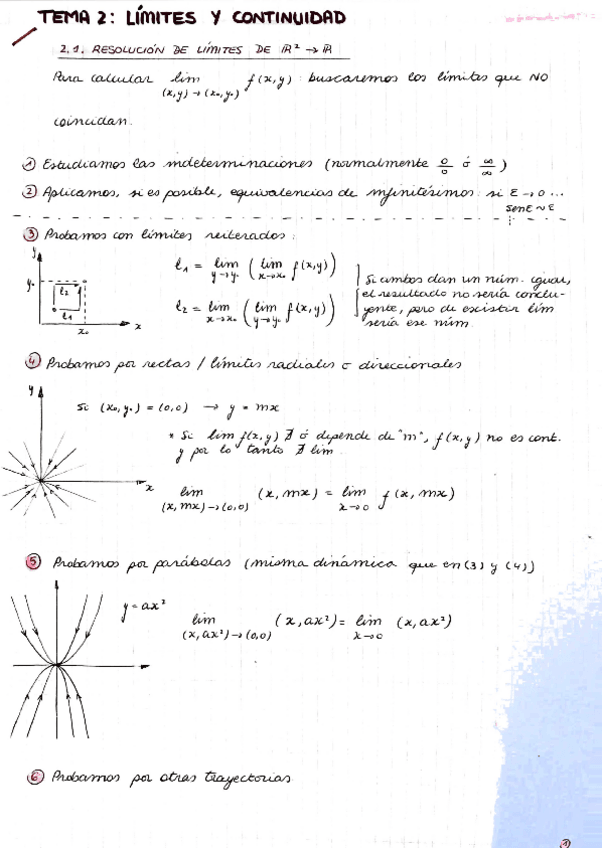 TEMA 2: LÍMITES Y CONTINUIDAD
2.1. RESOLUCIÓN DE LÍMITES DE ℝ² → ℝ
Para calcular lim f(x,y) : buscaremos los límites que NO
(x,y)→(x₀,y₀)
coincidan.
① Estudiamos las indeterminaciones (normalmente 0/0 ó ∞/∞)
② Aplicamos, si es posible, equivalencias de infinitésimos: si ε→0 ...
senε ~ ε
③ Probamos con límites reiterados:
y
y₀
l₂
l₁
x₀
x
l₁ = lim ( lim f(x,y) )
y→y₀ x→x₀
l₂ = lim ( lim f(x,y) )
x→x₀ y→y₀
Si ambos dan un núm. igual,
el resultado no sería conclu-
yente, pero de existir lím
sería ese núm.
④ Probamos por rectas / límites radiales o direccionales
y
x
Si (x₀,y₀) = (0,0) → y = mx
* Si lim f(x,y) ∄ ó depende de "m", f(x,y) no es cont.
y por lo tanto ∄ lim.
lim (x, mx) = lim f(x, mx)
(x, mx)→(0,0) x→0
⑤ Probamos por parábolas (misma dinámica que en (3) y (4))
y = ax²
lim (x, ax²) = lim (x, ax²)
(x, ax²)→(0,0) x→0
⑥ Probamos por otras trayectorias
①